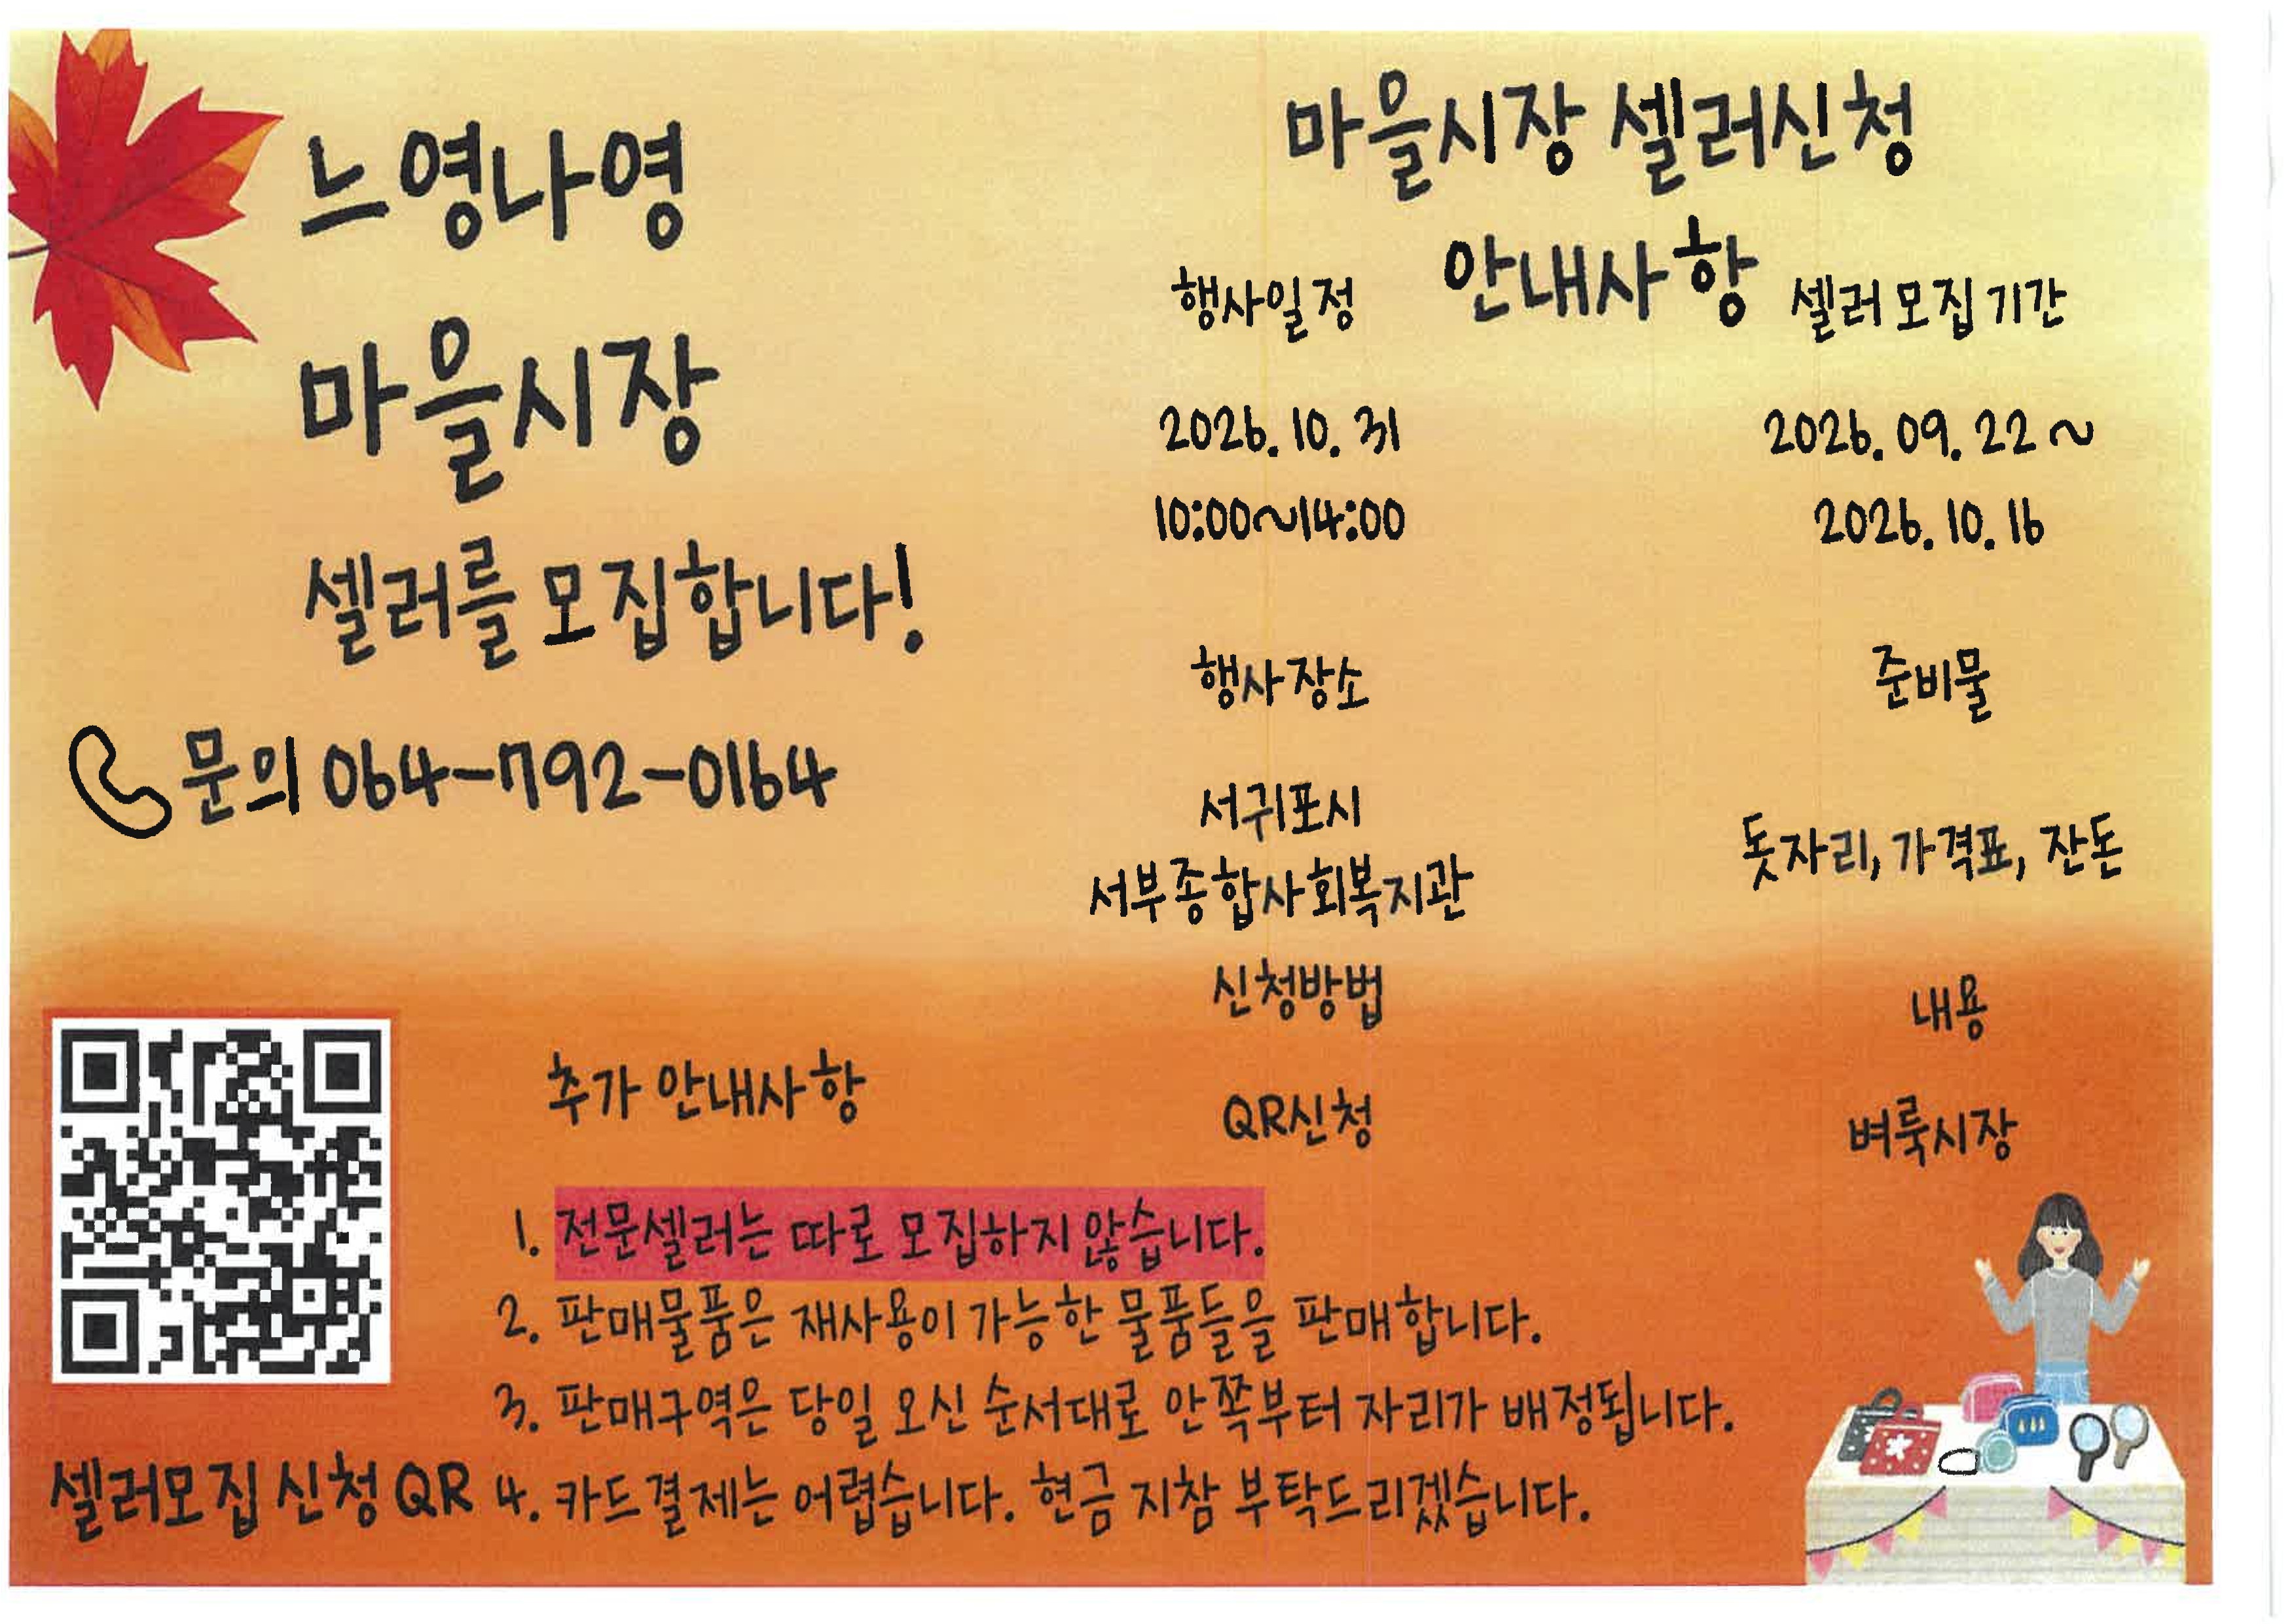 느영나영
마을시장
셀러를 모집합니다!
문의 064-792-0164
마을시장 셀러신청
안내사항
행사일정
2026. 10. 31
10:00~14:00
셀러 모집 기간
2026. 09. 22 ~
2026. 10. 16
행사장소
서귀포시
서부종합사회복지관
준비물
돗자리, 가격표, 잔돈
신청방법
QR신청
내용
벼룩시장
추가 안내사항
1. 전문셀러는 따로 모집하지 않습니다.
2. 판매물품은 재사용이 가능한 물품들을 판매합니다.
3. 판매구역은 당일 오신 순서대로 안쪽부터 자리가 배정됩니다.
4. 카드결제는 어렵습니다. 현금 지참 부탁드리겠습니다.
셀러모집 신청 QR